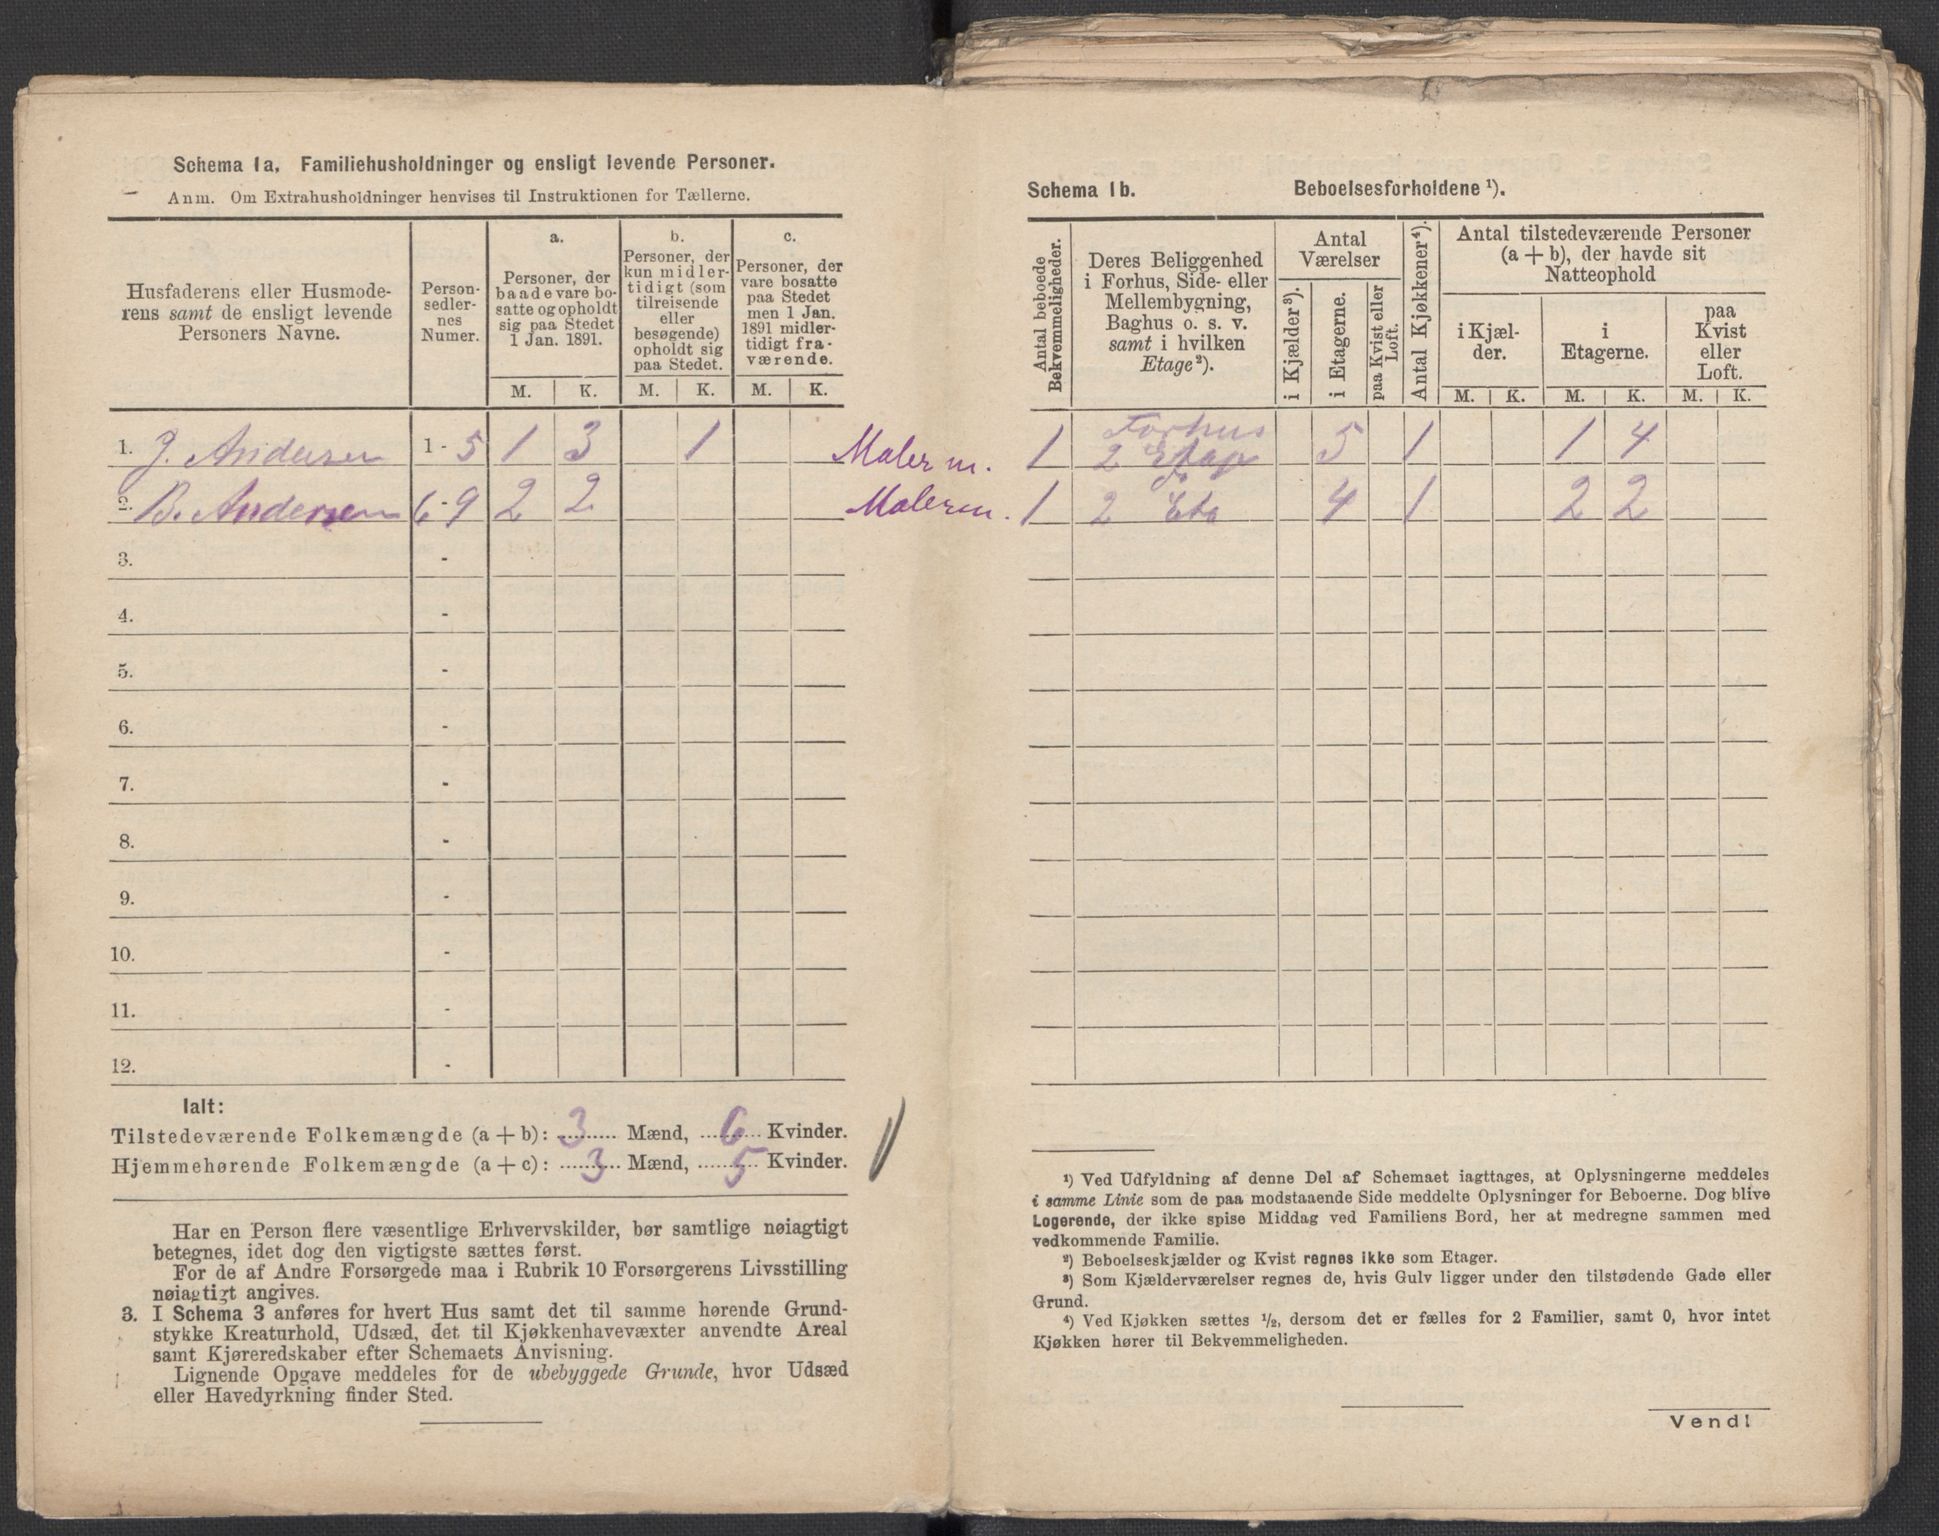 Schema 1a. Familiehusholdninger og ensligt levende Personer.
Anm. Om Extrahusholdninger henvises til Instruktionen for Tællerne.
Husfaderens eller Husmoderens samt de ensligt levende Personers Navne.
Personsedlernes Numer.
a.
Personer, der baade vare bosatte og opholdt sig paa Stedet 1 Jan. 1891.
b.
Personer, der kun midlertidigt (som tilreisende eller besøgende) opholdt sig paa Stedet.
c.
Personer, der vare bosatte paa Stedet men 1 Jan. 1891 midlertidigt fraværende.
M. K. M. K. M. K.
1. J. Andersen 1 - 5 1 3 1 Maler m.
2. B. Andersen 6 - 9 2 2 Malerm.
3. -
4. -
5. -
6. -
7. -
8. -
9. -
10. -
11. -
12. -
Ialt:
Tilstedeværende Folkemængde (a + b): 3 Mænd, 6 Kvinder.
Hjemmehørende Folkemængde (a + c): 3 Mænd, 5 Kvinder.
Har en Person flere væsentlige Erhvervskilder, bør samtlige nøiagtigt
betegnes, idet dog den vigtigste sættes først.
For de af Andre Forsørgede maa i Rubrik 10 Forsørgerens Livsstilling
nøiagtigt angives.
3. I Schema 3 anføres for hvert Hus samt det til samme hørende Grund-
stykke Kreaturhold, Udsæd, det til Kjøkkenhavevæxter anvendte Areal
samt Kjøreredskaber efter Schemaets Anvisning.
Lignende Opgave meddeles for de ubebyggede Grunde, hvor Udsæd
eller Havedyrkning finder Sted.
Schema 1b. Beboelsesforholdene ¹).
Antal beboede Bekvemmeligheder.
Deres Beliggenhed i Forhus, Side- eller Mellembygning, Baghus o. s. v. samt i hvilken Etage²).
Antal Værelser
i Kjælder³).
i Etagerne.
paa Kvist eller Loft.
Antal Kjøkkener⁴).
Antal tilstedeværende Personer (a + b), der havde sit Natteophold
i Kjælder.
i Etagerne.
paa Kvist eller Loft.
M. K. M. K. M. K.
1 Forhus 2 Etage 5 1 1 4
1 2 Eta 4 1 2 2
¹) Ved Udfyldning af denne Del af Schemaet iagttages, at Oplysningerne meddeles
i samme Linie som de paa modstaaende Side meddelte Oplysninger for Beboerne. Dog blive
Logerende, der ikke spise Middag ved Familiens Bord, her at medregne sammen med
vedkommende Familie.
²) Beboelseskjælder og Kvist regnes ikke som Etager.
³) Som Kjælderværelser regnes de, hvis Gulv ligger under den tilstødende Gade eller
Grund.
⁴) Ved Kjøkken sættes ½, dersom det er fælles for 2 Familier, samt 0, hvor intet
Kjøkken hører til Bekvemmeligheden.
Vend!